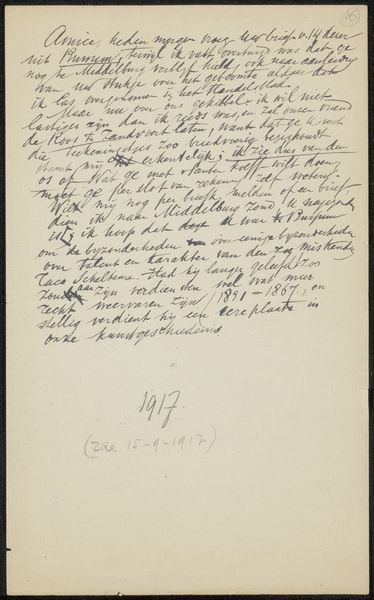 16
Amice, heden morgen vroeg Uw brief v. 14 dezer
uit Bussum, terwijl ik vast overtuigd was dat ge
nog te Middelburg verblijf hield, ook naar aanleiding
van Uw stukje over het geboomte aldaar dat
ik las overgenomen in het Handelsblad.
Maar nu over ons gekibbel: ik wil niet
lastiger zijn dan ik reeds was, en zal onzen vriend
de Roos te Zandvoort laten, want dat ge U met
die teekeningetjes zoo breedvoerig bezighoudt
stemt mij erkentelijk; ik zie dus van den
os af. Wat ge met Santen hoeft wilt doen,
moet ge per slot van rekening zelf weten.
Wilt mij nog per briefk. melden of een brief
dien ik naar Middelburg zond, U nagezonden
is; ik hoop dat
om de byzonderheden over eenige byzonderheden
over talent en karakter van den zoo miskenden
Taco Scheltema. Had hij langer geleefd zoo
zou aan zijn verdiensten wel wat meer
recht weervaren zijn (1831–1867), en
stellig verdient hij een eereplaats in
onze kunstgeschiedenis
1917.
(zie 15-9-1917)